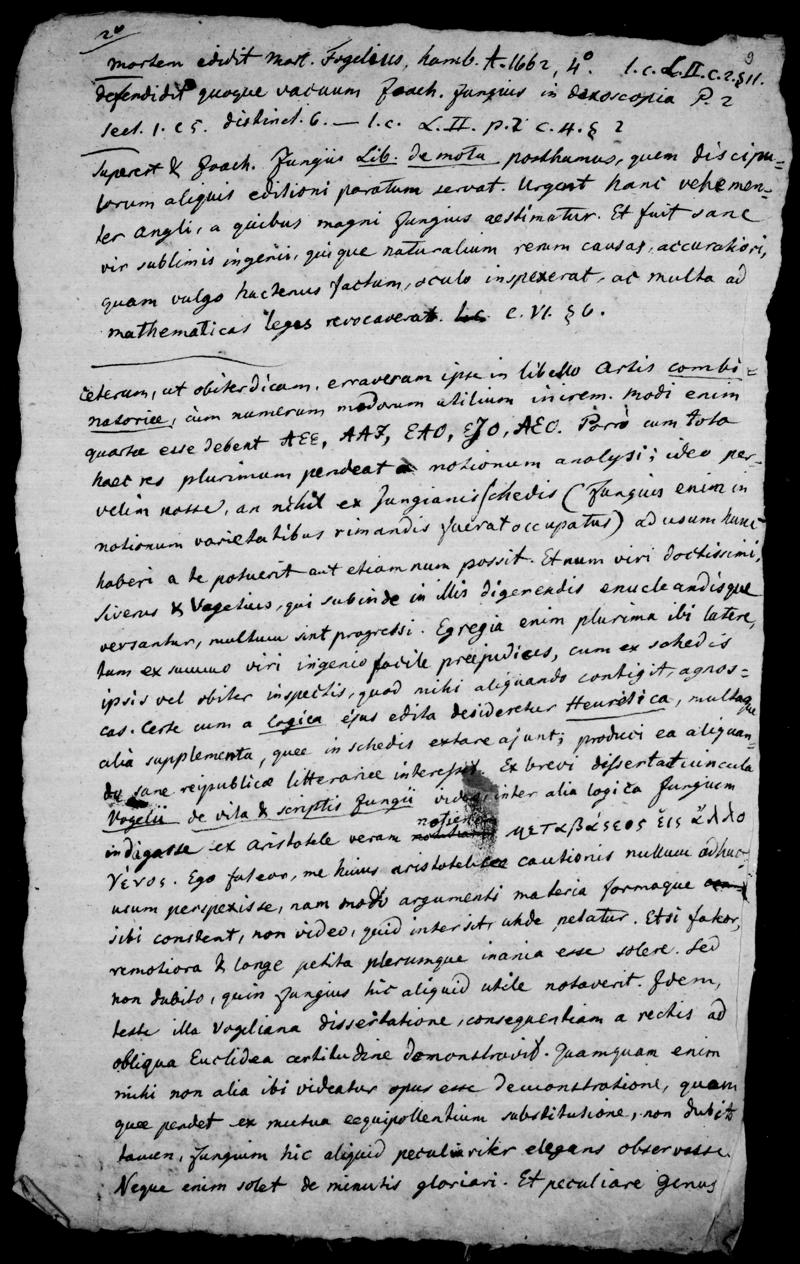 20
9
mortem edidit Mart. Fogelius, hamb. A. 1662, 4°. l.c. L.II.C.2.§11.
defendidit quoque vacuum Joach. Jungius in doxoscopia P. 2
sect. 1. c 5. distinct. 6. — l.c. L.II. p.2 c.4.§ 2
Superest & Joach. Jungii Lib. de motu posthumus, quem discipu=
lorum aliquis editioni paratum servat. Urgent hanc vehemen=
ter Angli, a quibus magni Jungius aestimatur. Et fuit sane
vir sublimis ingenii, quique naturalium rerum causas, accuratiori,
quam vulgo hactenus factum, oculo inspexerat, ac multa ad
mathematicas leges revocaverat. l.c. c. VI. § 6.
Ceterum, ut obiter dicam, erraveram ipse in libello Artis combi=
natoriae, cùm numerum modorum utilium inirem. Modi enim
quartae esse debent AEE, AAJ, EAO, EJO, AEO. Porrò cum tota
haec res plurimum pendeat a notionum analysi; ideo per=
velim nosse, an nihil ex Jungianis schedis (Jungius enim in
notionum varietatibus rimandis fuerat occupatus) ad usum hunc
haberi a te potuerit aut etiamnum possit. Et num viri doctissimi,
Siverus & Vogelius, qui subinde in illis digerendis enucleandisque
versantur, multum sint progressi. Egregia enim plurima ibi latere,
tum ex summo viri ingenio facile praejudices, cum ex schedis
ipsis vel obiter inspectis, quod mihi aliquando contigit, agnos=
cas. Certe cum a logica ejus edita desideretur Heuretica, multaque
alia supplementa, quae in schedis extare ajunt; produci ea aliquan=
do sane reipublicae litterariae interest. Ex brevi dissertatiuncula
Vogelii de vita & scriptis Jungii video, inter alia logica Jungium
indagasse ex Aristotele veram notionem μεταβάσεος ἔις ἄλλο
γενος. Ego fateor, me huius aristotelicae cautionis nullum adhuc
usum perspexisse, nam modo argumenti materia formaque
sibi constent, non video, quid intersit, unde petatur. Etsi fateor,
remotiora & longe petita plerumque inania esse solere. Sed
non dubito, quin Jungius hic aliquid utile notaverit. Idem,
teste illa Vogeliana dissertatione, consequentiam a rectis ad
obliqua Euclidea certitudine demonstravit. Quamquam enim
mihi non alia ibi videatur opus esse demonstratione, quam
quae pendet ex mutua aequipollentium substitutione, non dubito
tamen, Jungium hic aliquid peculiariter elegans observasse.
Neque enim solet de minutis gloriari. Et peculiare genus